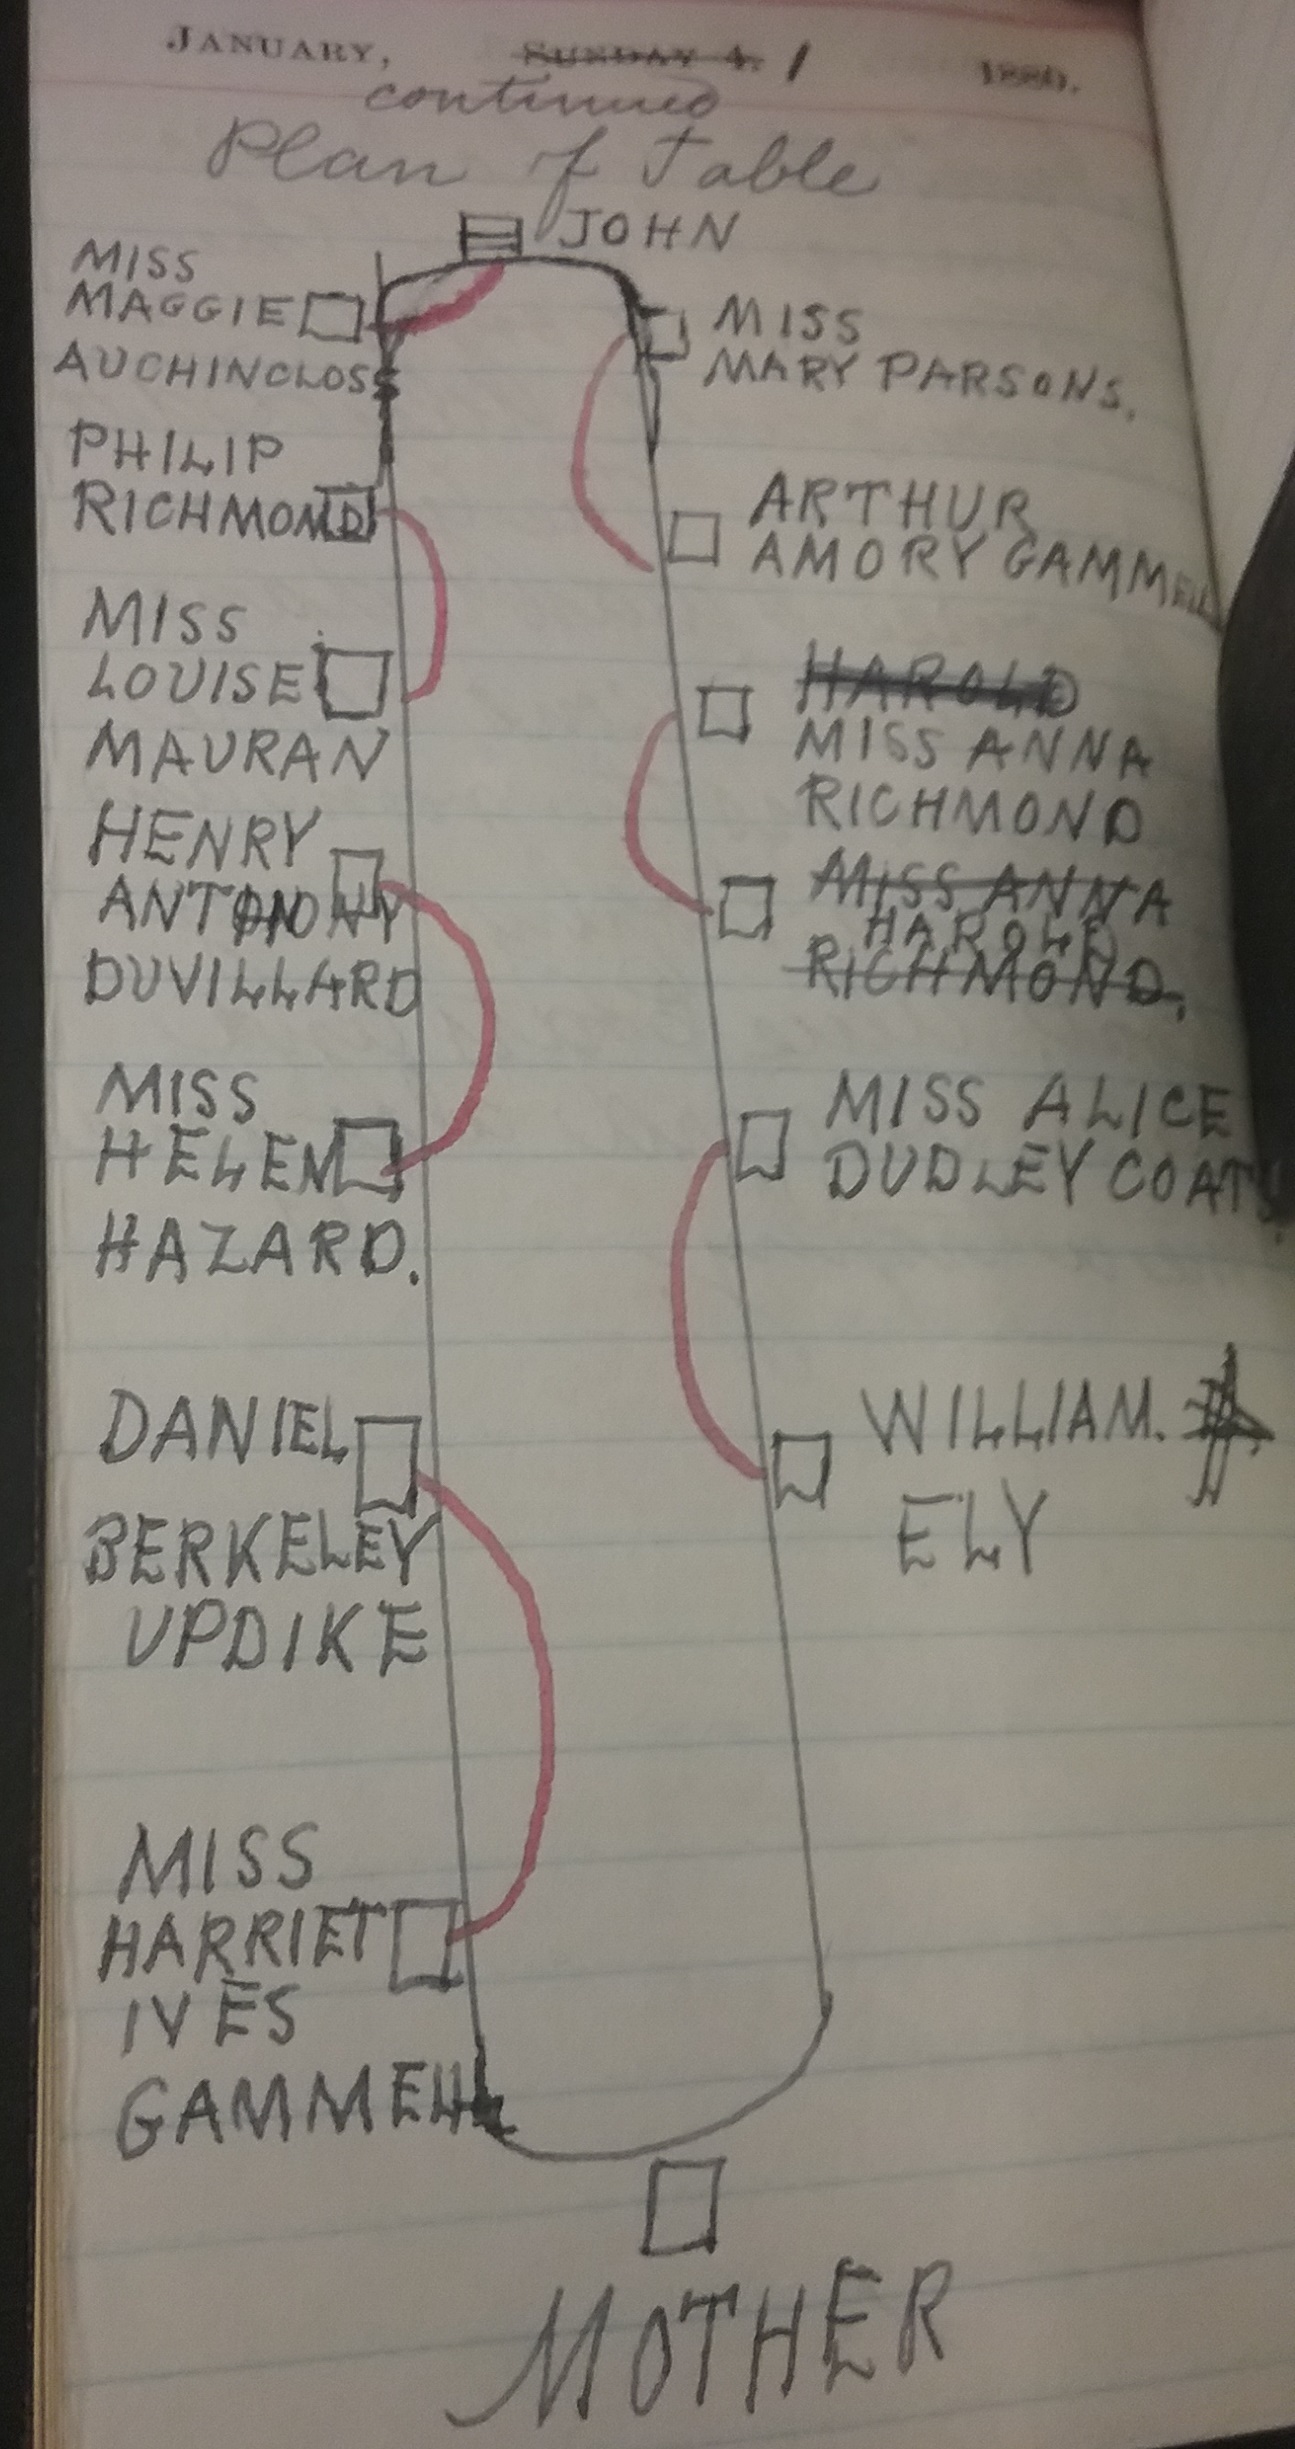 JANUARY, SUNDAY 4. 1 1880.
continued
Plan of Table
JOHN
MISS
MAGGIE
AUCHINCLOSS
PHILIP
RICHMOND
MISS
LOUISE
MAURAN
HENRY
ANTHONY
DUVILLARD
MISS
HELEN
HAZARD.
DANIEL
BERKELEY
UPDIKE
MISS
HARRIET
IVES
GAMMELL
MISS
MARY PARSONS.
ARTHUR
AMORY GAMMELL
HAROLD
MISS ANNA
RICHMOND
MISS ANNA
HAROLD
RICHMOND.
MISS ALICE
DUDLEY COATS.
WILLIAM.
ELY
MOTHER